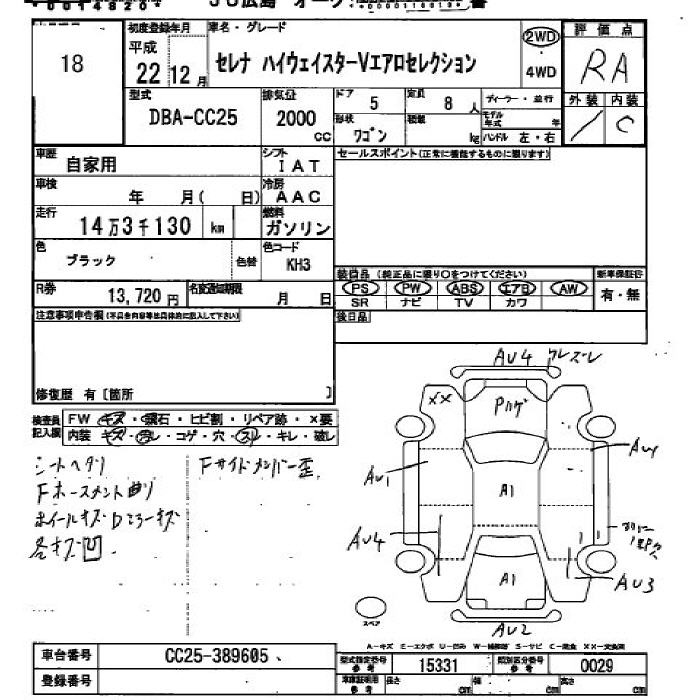 18
初度登録年月
平成
22 12月
車名・グレード
セレナ ハイウェイスターVエアロセレクション
2WD
・
4WD
評価点
RA
外装 内装
/ C
型式
DBA-CC25
排気量
2000
CC
ドア
5
定員
8
人
ディーラー・並行
形状
ワゴン
積載
kg
モデル年式
年
ハンドル 左・右
車歴
自家用
シフト
IAT
セールスポイント(正常に機能するものに限ります)
車検
年 月( 日)
冷房
AAC
走行
14万3千130 km
燃料
ガソリン
色
ブラック
色替
色コード
KH3
R券
13,720円
名変通知期限
月 日
装備品 (純正品に限り○をつけてください)
新車保証書
PS PW ABS エアB AW
有・無
SR ナビ TV カワ
後日品
注意事項申告欄(不具合内容等は具体的に記入して下さい)
修復歴 有〔箇所 〕
検査員
記入欄
FW キズ・飛石・ヒビ割・リペア跡・×要
内装 キズ・汚レ・コゲ・穴・スレ・キレ・破レ
シートヘタリ
Fホースメント曲り
ホイールキズDミラーキズ
各キズ凹
Fサイドメンバー歪
AU4
XX
AU1
A1
AU4
A1
AU3
AU2
スペア
A-キズ E-エクボ U-凹み W-補修跡 S-サビ C-腐食 XX-交換済
車台番号
CC25-389605
登録番号
型式指定番号
参考
15331
類別区分番号
参考
0029
長さ
cm
幅
cm
高さ
cm